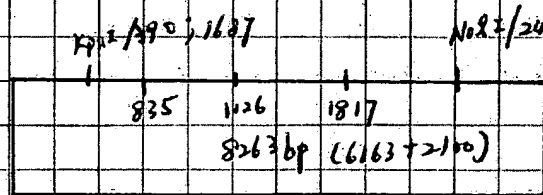 KpnI/790; 1687 NotI/24
835 1126 1817
8263 bp (6163 + 2100)